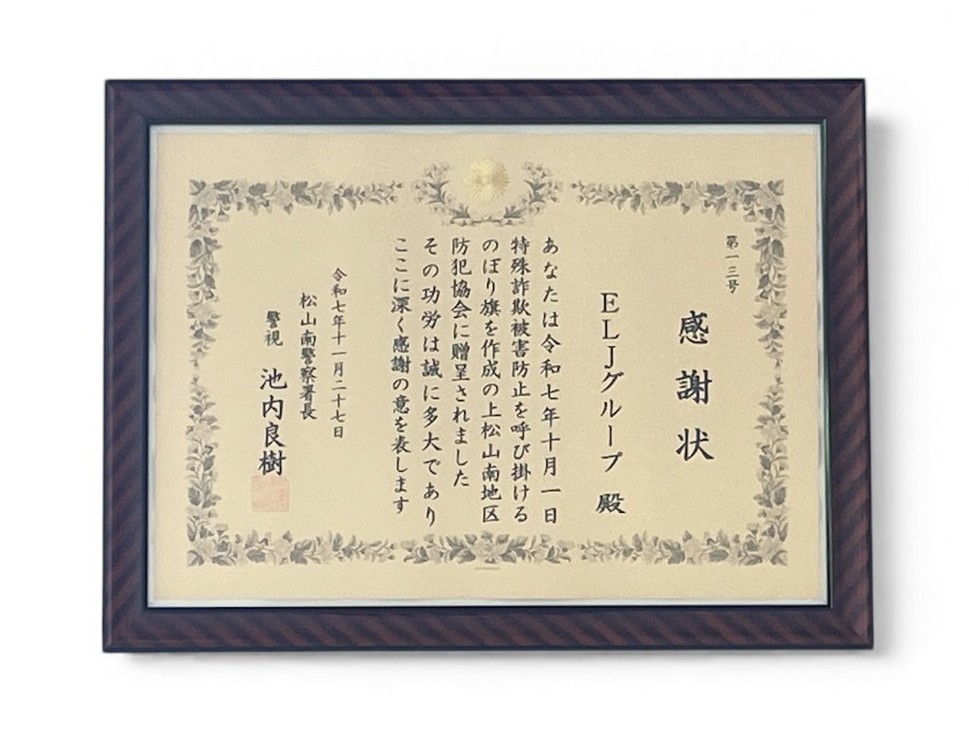 第一三号
感謝状
ELJグループ 殿
あなたは令和七年十月一日
特殊詐欺被害防止を呼び掛ける
のぼり旗を作成の上松山南地区
防犯協会に贈呈されました
その功労は誠に多大であり
ここに深く感謝の意を表します
令和七年十一月二十七日
松山南警察署長
警視 池内良樹